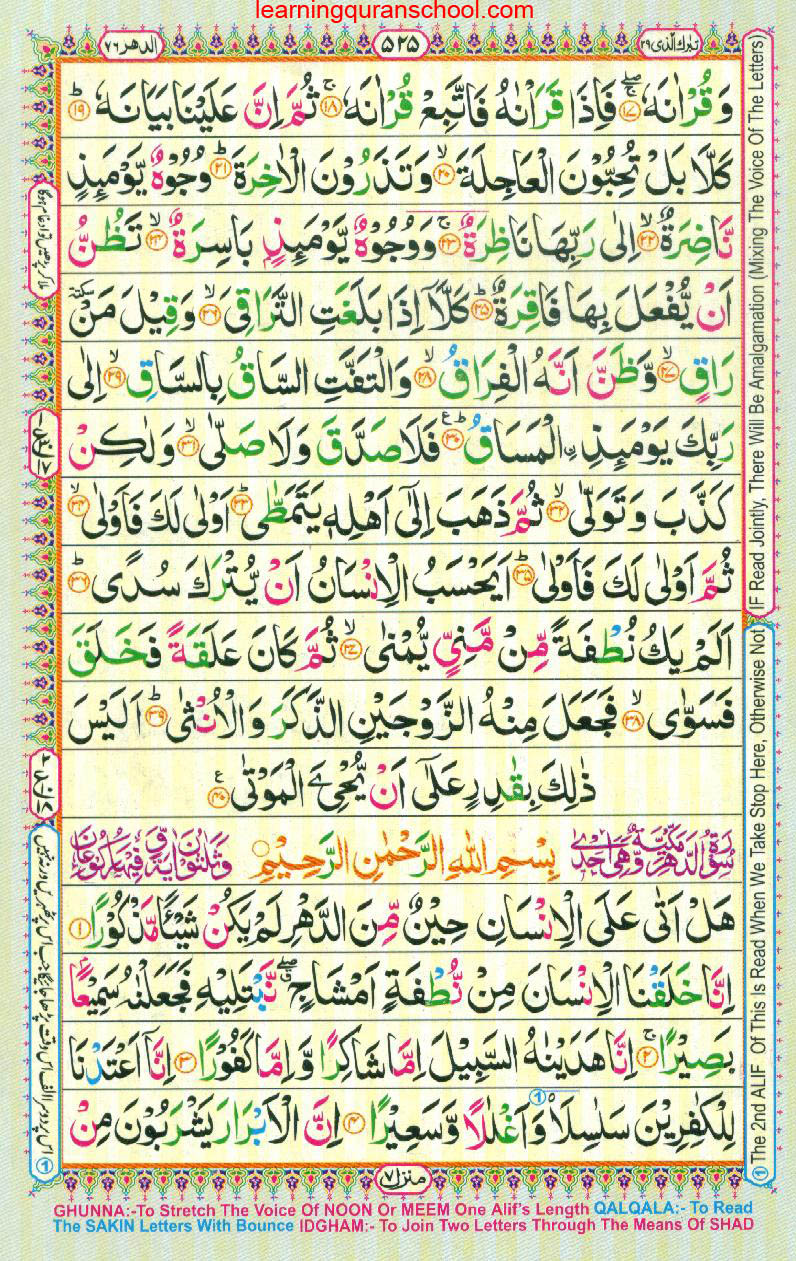 learningquranschool.com
الدهر ٧٦
٥٢٥
تبٰرك الّذى ٢٩
وَقُرْاٰنَهٗ ۚۖ ۱۷ فَاِذَا قَرَاْنٰهُ فَاتَّبِعْ قُرْاٰنَهٗ ۚ ۱۸ ثُمَّ اِنَّ عَلَيْنَا بَيَانَهٗ ؕ ۱۹
كَلَّا بَلْ تُحِبُّوْنَ الْعَاجِلَةَ ۙ ۲۰ وَتَذَرُوْنَ الْاٰخِرَةَ ؕ ۲۱ وُجُوْهٌ يَّوْمَئِذٍ
نَّاضِرَةٌ ۙ ۲۲ اِلٰى رَبِّهَا نَاظِرَةٌ ۚ ۲۳ وَوُجُوْهٌ يَّوْمَئِذٍۭ بَاسِرَةٌ ۙ ۲۴ تَظُنُّ
اَنْ يُّفْعَلَ بِهَا فَاقِرَةٌ ؕ ۲۵ كَلَّاۤ اِذَا بَلَغَتِ التَّرَاقِىَ ۙ ۲۶ وَقِيْلَ مَنْ سكتة
رَاقٍ ۙ ۲۷ وَّظَنَّ اَنَّهُ الْفِرَاقُ ۙ ۲۸ وَالْتَفَّتِ السَّاقُ بِالسَّاقِ ۙ ۲۹ اِلٰى
رَبِّكَ يَوْمَئِذِ ۨ الْمَسَاقُ ؕ ع ۳۰ فَلَا صَدَّقَ وَلَا صَلّٰى ۙ ۳۱ وَلٰكِنْ
كَذَّبَ وَتَوَلّٰى ۙ ۳۲ ثُمَّ ذَهَبَ اِلٰٓى اَهْلِهٖ يَتَمَطّٰى ؕ ۳۳ اَوْلٰى لَكَ فَاَوْلٰى ۙ ۳۴
ثُمَّ اَوْلٰى لَكَ فَاَوْلٰى ؕ ۳۵ اَيَحْسَبُ الْاِنْسَانُ اَنْ يُّتْرَكَ سُدًى ؕ ۳۶
اَلَمْ يَكُ نُطْفَةً مِّنْ مَّنِىٍّ يُّمْنٰى ۙ ۳۷ ثُمَّ كَانَ عَلَقَةً فَخَلَقَ
فَسَوّٰى ۙ ۳۸ فَجَعَلَ مِنْهُ الزَّوْجَيْنِ الذَّكَرَ وَالْاُنْثٰى ؕ ۳۹ اَلَيْسَ
ذٰلِكَ بِقٰدِرٍ عَلٰٓى اَنْ يُّحْیِۦَ الْمَوْتٰى ع ۴۰
سُوْرَةُ الدَّهْرِ مَكِّيَّةٌ وَّهِىَ اِحْدٰى بِسْمِ اللهِ الرَّحْمٰنِ الرَّحِيْمِ وَثَلٰثُوْنَ اٰيَةً وَّفِيْهَا رُكُوْعَانِ
هَلْ اَتٰى عَلَى الْاِنْسَانِ حِيْنٌ مِّنَ الدَّهْرِ لَمْ يَكُنْ شَيْـًٔا مَّذْكُوْرًا ۱
اِنَّا خَلَقْنَا الْاِنْسَانَ مِنْ نُّطْفَةٍ اَمْشَاجٍ ۖۗ نَّبْتَلِيْهِ فَجَعَلْنٰهُ سَمِيْعًۢا
بَصِيْرًا ۚ ۲ اِنَّا هَدَيْنٰهُ السَّبِيْلَ اِمَّا شَاكِرًا وَّاِمَّا كَفُوْرًا ۳ اِنَّاۤ اَعْتَدْنَا
لِلْكٰفِرِيْنَ سَلٰسِلَا۟ وَاَغْلٰلًا وَّسَعِيْرًا ۴ اِنَّ الْاَبْرَارَ يَشْرَبُوْنَ مِنْ
منزل ٧
IF Read Jointly, There Will Be Amalgamation (Mixing The Voice Of The Letters)
① The 2nd ALIF Of This Is Read When We Take Stop Here, Otherwise Not
GHUNNA:-To Stretch The Voice Of NOON Or MEEM One Alif's Length QALQALA:- To Read
The SAKIN Letters With Bounce IDGHAM:- To Join Two Letters Through The Means Of SHAD